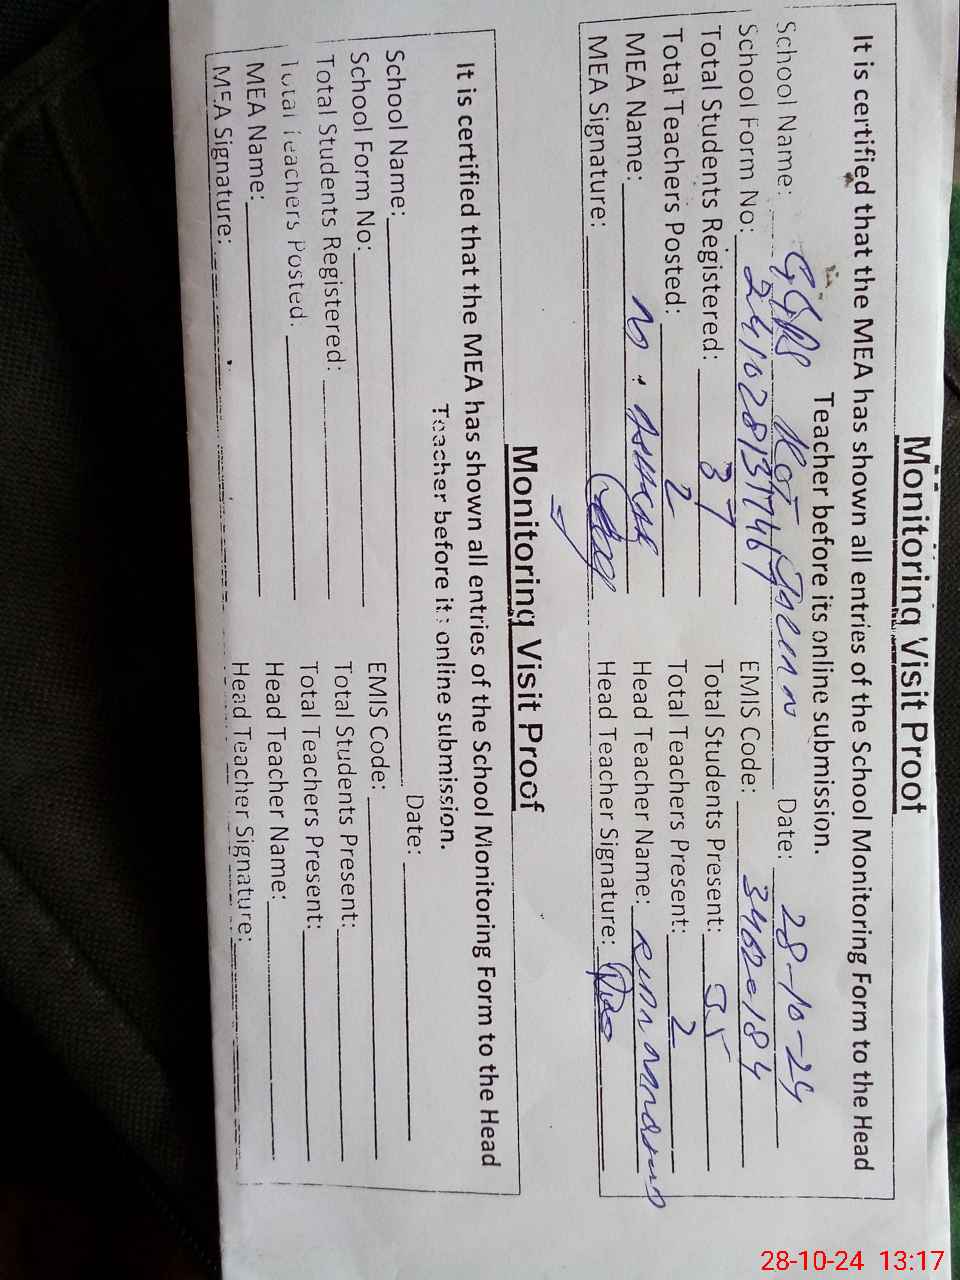 Monitoring Visit Proof
It is certified that the MEA has shown all entries of the School Monitoring Form to the Head
Teacher before its online submission.
School Name: GGPS Kot Date: 28-10-24
School Form No: EMIS Code:
Total Students Registered: 37 Total Students Present: 35
Total Teachers Posted: 2 Total Teachers Present: 2
MEA Name: Head Teacher Name:
MEA Signature: Head Teacher Signature:
Monitoring Visit Proof
It is certified that the MEA has shown all entries of the School Monitoring Form to the Head
Teacher before its online submission.
School Name: Date:
School Form No: EMIS Code:
Total Students Registered: Total Students Present:
Total Teachers Posted: Total Teachers Present:
MEA Name: Head Teacher Name:
MEA Signature: Head Teacher Signature:
28-10-24 13:17